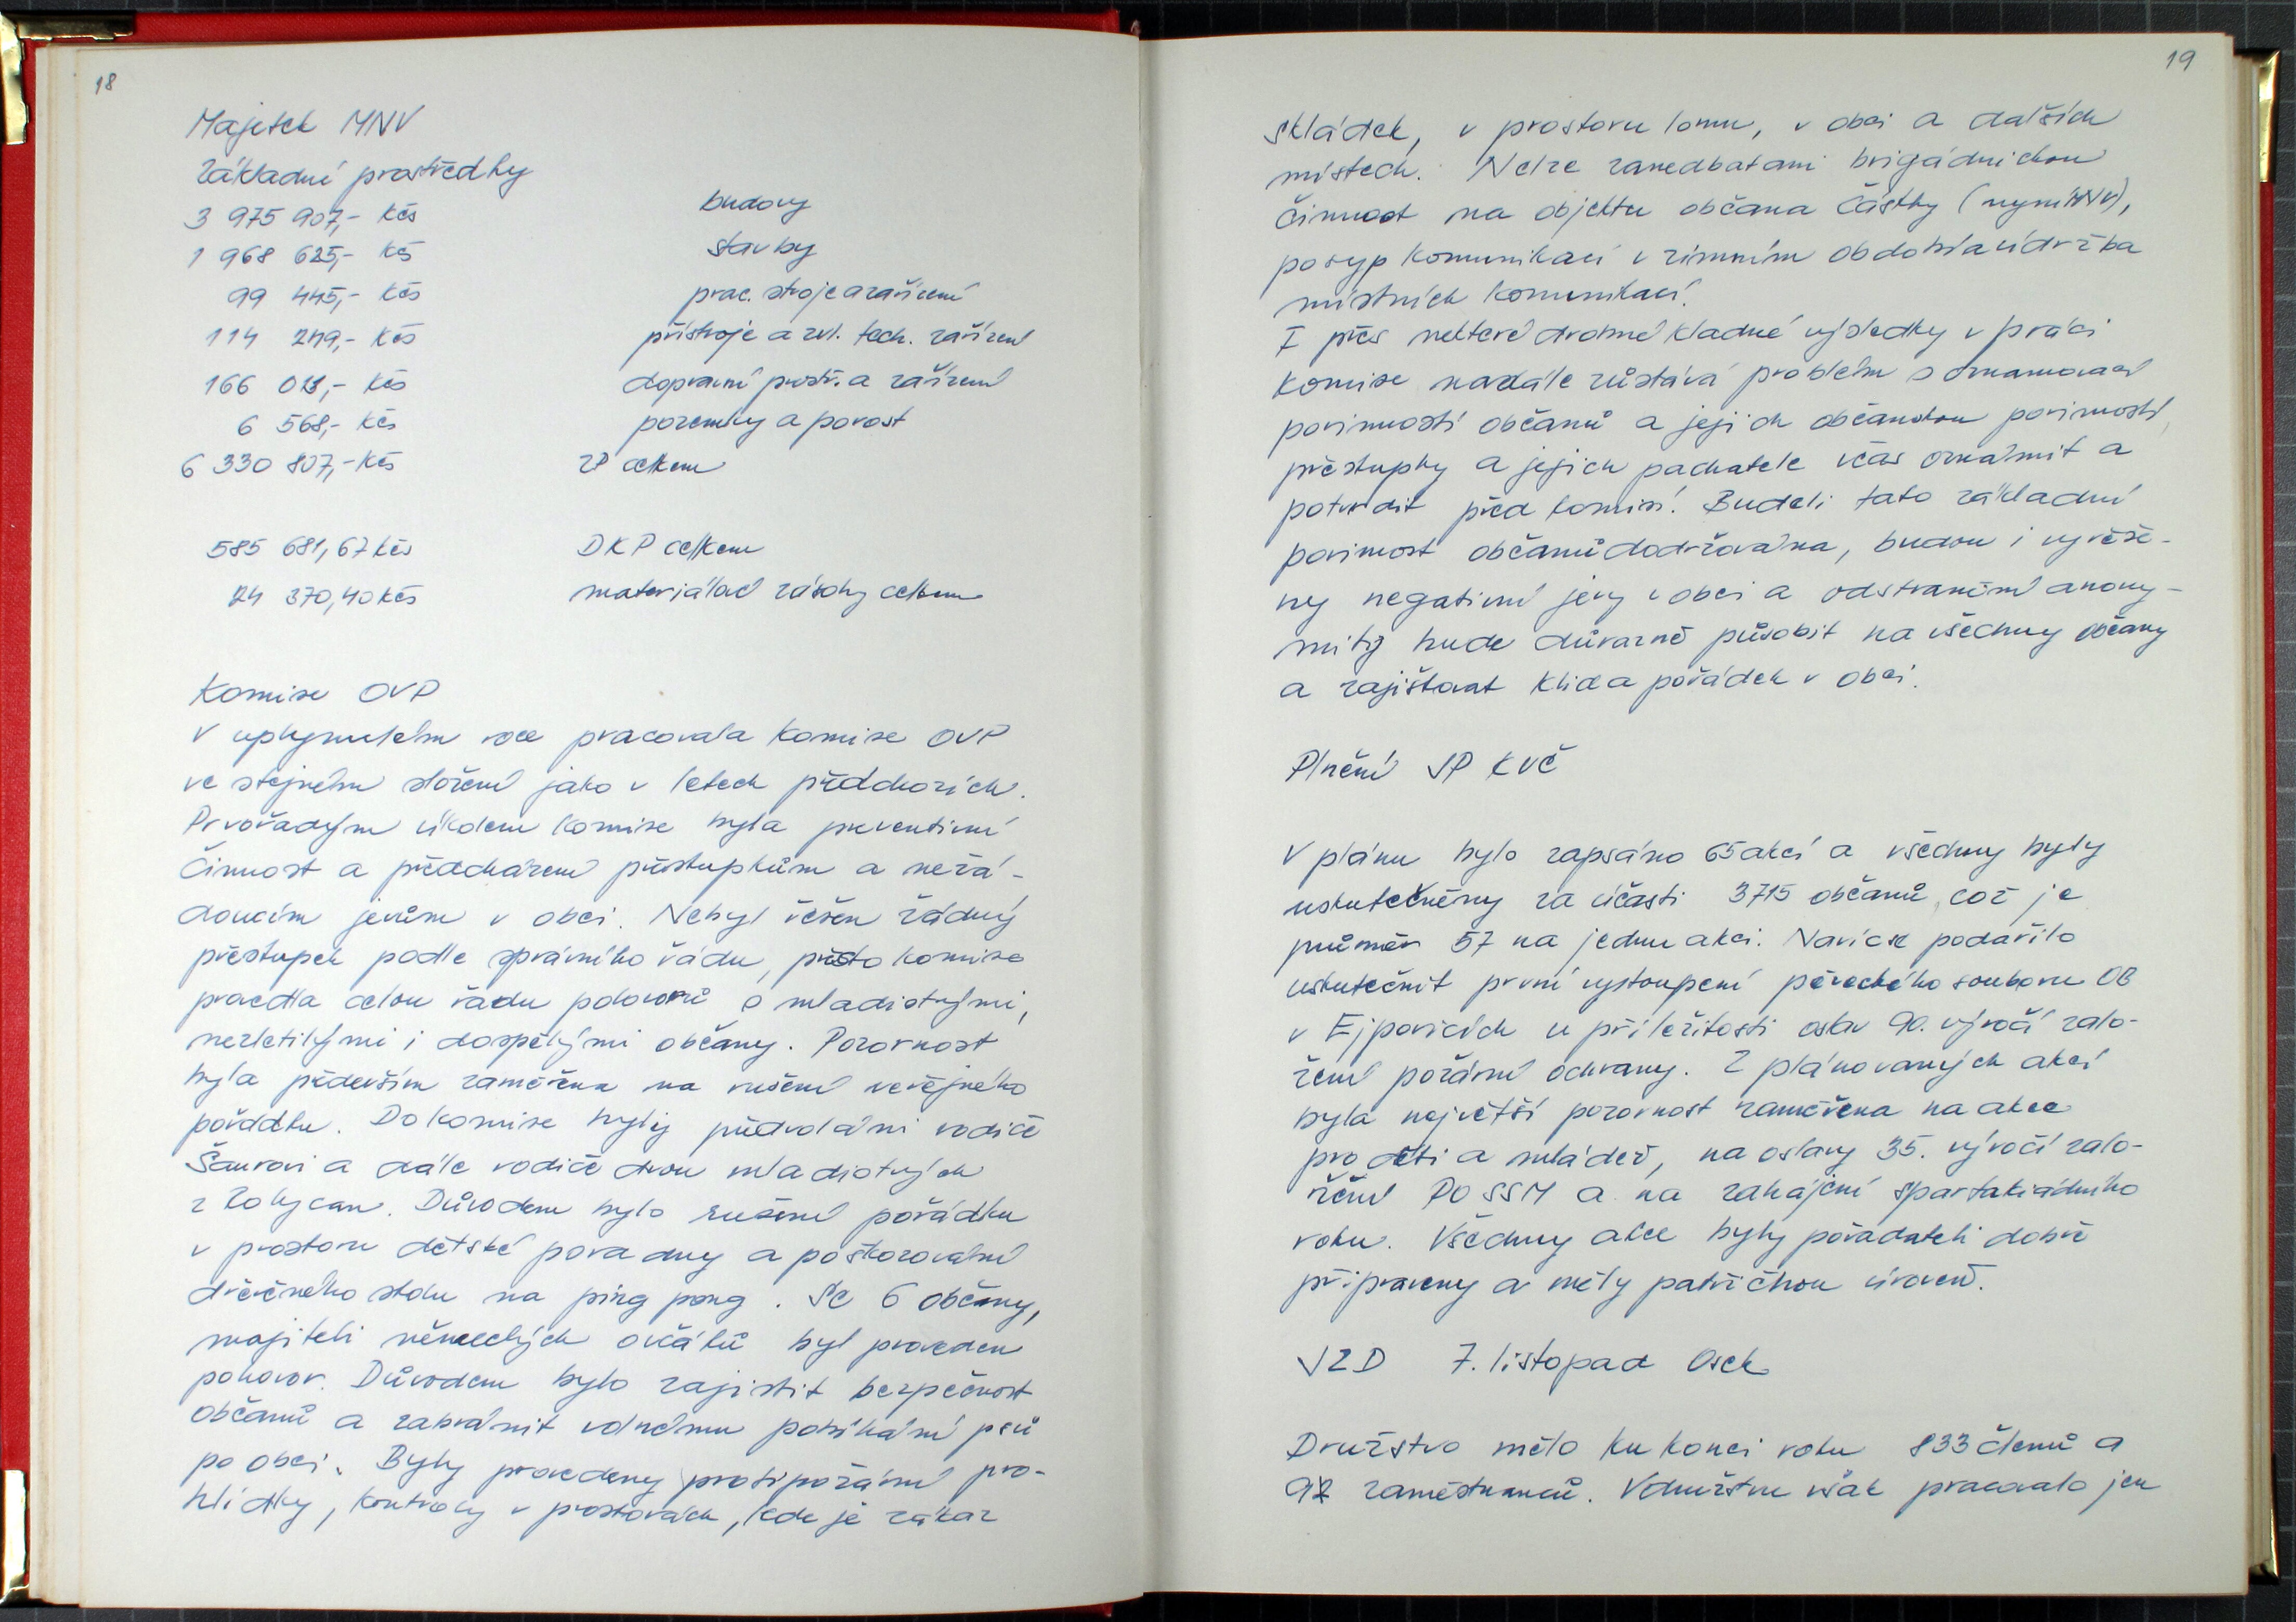 18
Majetek MNV
Základní prostředky
3 975 907,- Kčs budovy
1 968 625,- Kčs stavby
99 445,- Kčs prac. stroje a zařízení
114 249,- Kčs přístroje a zvl. tech. zařízení
166 013,- Kčs dopravní prostř. a zařízení
6 568,- Kčs pozemky a porost
6 330 807,- Kčs ZP celkem
585 681,67 Kčs DKP celkem
24 370,40 Kčs materiálové zásoby celkem
Komise OVP
V uplynulém roce pracovala komise OVP
ve stejném složení jako v letech předchozích.
Prvořadým úkolem komise byla preventivní
činnost a předcházení přestupkům a nežá-
doucím jevům v obci. Nebyl řešen žádný
přestupek podle správního řádu, přesto komise
provedla celou řadu pohovorů s mladistvými,
nezletilými i dospělými občany. Pozornost
byla především zaměřena na rušení veřejného
pořádku. Do komise byly předvoláni rodiče
Šaurovi a dále rodiče dvou mladistvých
z Rokycan. Důvodem bylo rušení pořádku
v prostoru dětské poradny a poškozování
dřevěného stolu na ping pong. Se 6 občany,
majiteli německých ovčáků byl proveden
pohovor. Důvodem bylo zajistit bezpečnost
občanů a zabránit volnému pobíhání psů
po obci. Byly provedeny protipožární pro-
hlídky, kontroly v prostorách, kde je zákaz
19
skládek, v prostoru lomu, v obci a dalších
místech. Nelze zanedbat ani brigádnickou
činnost na objektu občana Částky (nyní MNV),
posyp komunikací v zimním období a údržba
místních komunikací.
I přes některé drobné kladné výsledky v práci
komise nadále zůstává problém s oznamovací
povinností občanů a jejich občanskou povinností
přestupky a jejich pachatele včas oznámit a
potvrdit před komisí. Budeli tato základní
povinnost občanů dodržována, budou i vyřeše-
ny negativní jevy v obci a odstranění anony-
mity bude důrazně působit na všechny občany
a zajišťovat klid a pořádek v obci.
Plnění JP KVČ
V plánu bylo zapsáno 65 akcí a všechny byly
uskutečněny za účasti 3715 občanů, což je
průměr 57 na jednu akci. Navíc se podařilo
uskutečnit první vystoupení pěveckého souboru OB
v Ejpovicích u příležitosti oslav 90. výročí zalo-
žení požární ochrany. Z plánovaných akcí
byla největší pozornost zaměřena na akce
pro děti a mládež, na oslavy 35. výročí zalo-
žení PO SSM a na zahájení spartakiádního
roku. Všechny akce byly pořadateli dobře
připraveny a měly patřičnou úroveň.
JZD 7. listopad Osek
Družstvo mělo ku konci roku 833 členů a
92 zaměstnanců. V družstvu však pracovalo jen